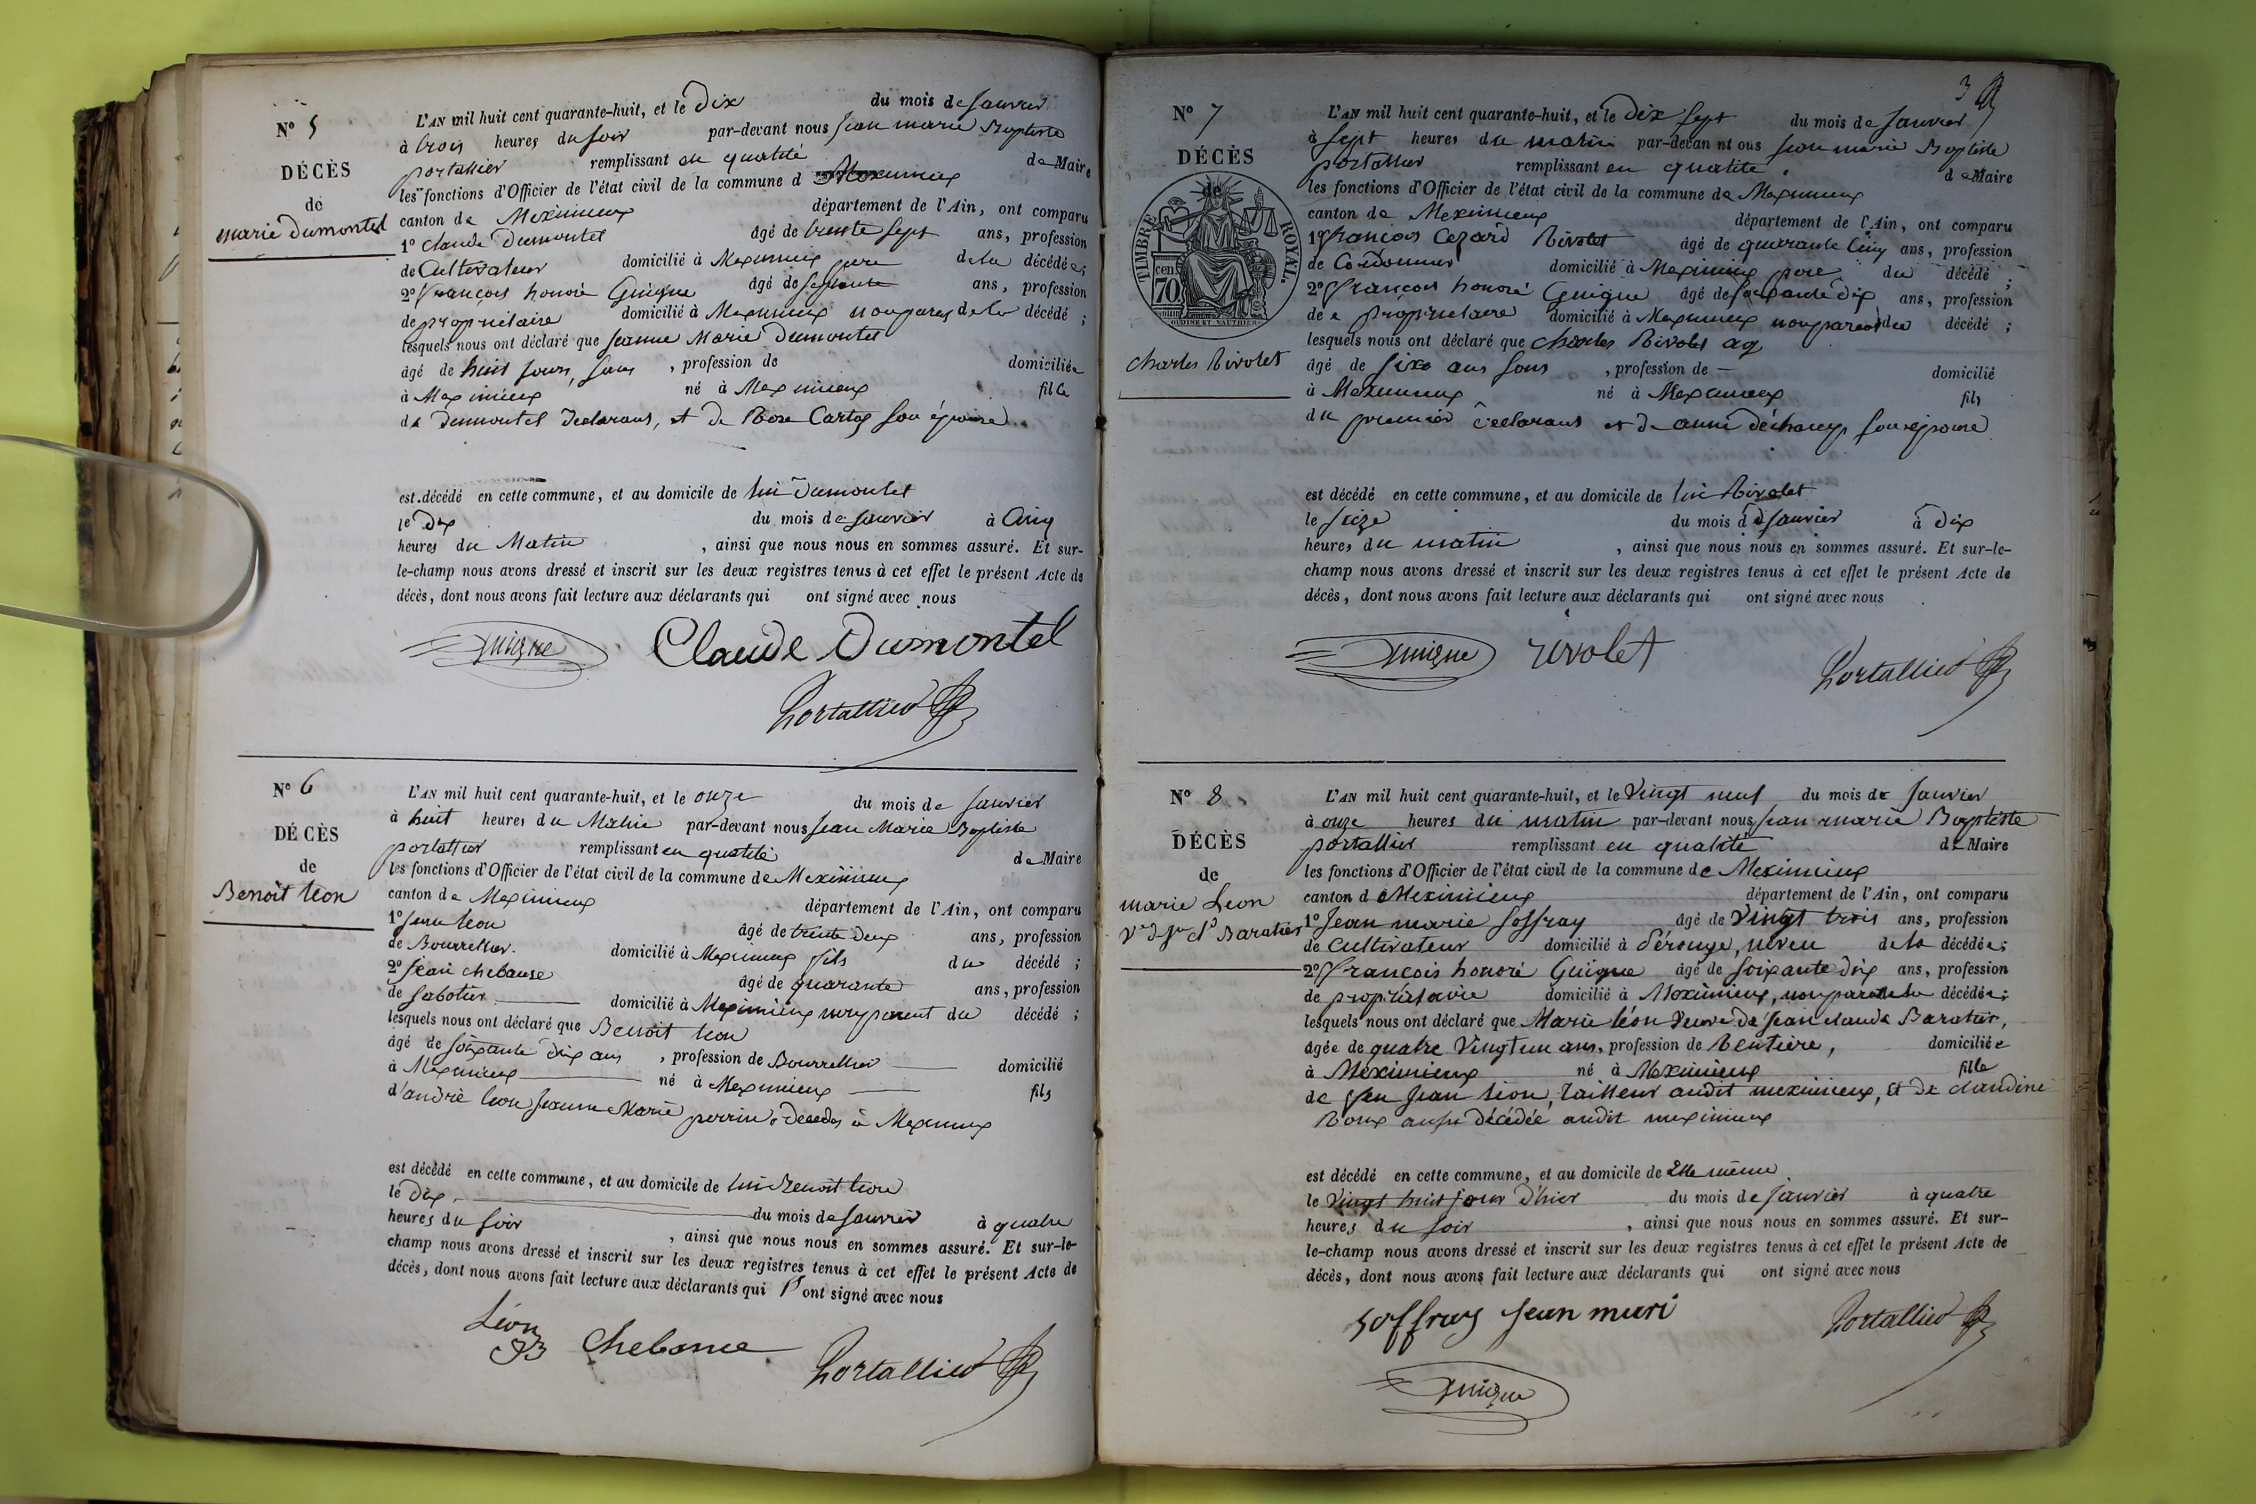 N° 5
DÉCÈS
de
marie Dumontel
L'AN mil huit cent quarante-huit, et le Dix du mois de Janvier
à trois heures du soir par-devant nous Jean marie Baptiste
portallier remplissant en qualité de Maire
les fonctions d'Officier de l'état civil de la commune d Meximieux
canton de Meximieux département de l'Ain, ont comparu
1° Claude Dumontel âgé de trente sept ans, profession
de Cultivateur domicilié à Meximieux pere de la décédée;
2° François honoré Guigue âgé de septante ans, profession
de propriétaire domicilié à Meximieux non parent de la décédé;
lesquels nous ont déclaré que Jeanne Marie Dumontel
âgé de huit jours, sans, profession de domiciliée
à Meximieux né à Meximieux fille
de Dumontel declarant, et de Rose Cartez son épouse
est décédé en cette commune, et au domicile de lui Dumontel
le Dix du mois de Janvier à Cinq
heures du Matin, ainsi que nous nous en sommes assuré. Et sur-
le-champ nous avons dressé et inscrit sur les deux registres tenus à cet effet le présent Acte de
décès, dont nous avons fait lecture aux déclarants qui ont signé avec nous
Guigue Claude Dumontel
Portallier
N° 6
DÉCÈS
de
Benoit Leon
L'AN mil huit cent quarante-huit, et le onze du mois de Janvier
à huit heures du Matin par-devant nous Jean Marie Baptiste
portallier remplissant en qualité de Maire
les fonctions d'Officier de l'état civil de la commune de Meximieux
canton de Meximieux département de l'Ain, ont comparu
1° Jean Leon âgé de trente deux ans, profession
de Bourrelier. domicilié à Meximieux fils du décédé;
2° Jean chebance âgé de quarante ans, profession
de Sabotier domicilié à Meximieux non parent du décédé;
lesquels nous ont déclaré que Benoit Leon
âgé de soixante dix ans, profession de Bourrellier domicilié
à Meximieux né à Meximieux fils
d'andré Leon Jeanne Marie perrin, décédés à Meximieux
est décédé en cette commune, et au domicile de lui Benoit Leon
le Dix du mois de Janvier à quatre
heures du soir, ainsi que nous nous en sommes assuré. Et sur-le-
champ nous avons dressé et inscrit sur les deux registres tenus à cet effet le présent Acte de
décès, dont nous avons fait lecture aux déclarants qui ont signé avec nous
Léon Chebance Portallier
3
N° 7
DÉCÈS
de
TIMBRE ROYAL.
70
cen
charles Rivolet
L'AN mil huit cent quarante-huit, et le Dix sept du mois de Janvier
à sept heures du matin par-devan nt ous Jean marie Baptiste
portallier remplissant en qualité de Maire
les fonctions d'Officier de l'état civil de la commune de Meximieux
canton de Meximieux département de l'Ain, ont comparu
1° françois Cezard Rivolet âgé de quarante cinq ans, profession
de Cordonnier domicilié à Meximieux pere du décédé;
2° françois honoré Guigue âgé de soixante dix ans, profession
de propriétaire domicilié à Meximieux non parent du décédé;
lesquels nous ont déclaré que charles Rivolet ag
âgé de sixe ans sans, profession de — domicilié
à Meximieux né à Meximieux fils
du premier déclarant et de anne déchamp son épouse
est décédé en cette commune, et au domicile de lui Rivolet
le seize du mois d Janvier à dix
heures du matin, ainsi que nous nous en sommes assuré. Et sur-le-
champ nous avons dressé et inscrit sur les deux registres tenus à cet effet le présent Acte de
décès, dont nous avons fait lecture aux déclarants qui ont signé avec nous
Guigue rivolet Portallier
N° 8
DÉCÈS
de
marie Leon
Ve de Jn Cl Baratier
L'AN mil huit cent quarante-huit, et le Vingt neuf du mois de Janvier
à onze heures du matin par-devant nous Jean marie Baptiste
portallier remplissant en qualité de Maire
les fonctions d'Officier de l'état civil de la commune de Meximieux
canton de Meximieux département de l'Ain, ont comparu
1° Jean marie Soffray âgé de Vingt trois ans, profession
de Cultivateur domicilié à Pérouge, neveu de la décédée;
2° François honoré Guigue âgé de soixante dix ans, profession
de propriétaire domicilié à Meximieux, non parent de la décédée;
lesquels nous ont déclaré que Marie Léon Veuve de Jean claude Baratier,
âgée de quatre Vingt un ans, profession de Rentière, domiciliée
à Meximieux né à Meximieux fille
de feu Jean Léon, tailleur audit meximieux, et de claudine
Roux aussi décédée audit meximieux
est décédé en cette commune, et au domicile de Elle même
le Vingt huit jour d'hier du mois de Janvier à quatre
heures du soir, ainsi que nous nous en sommes assuré. Et sur-
le-champ nous avons dressé et inscrit sur les deux registres tenus à cet effet le présent Acte de
décès, dont nous avons fait lecture aux déclarants qui ont signé avec nous
Soffray Jean mari Portallier
Guigue